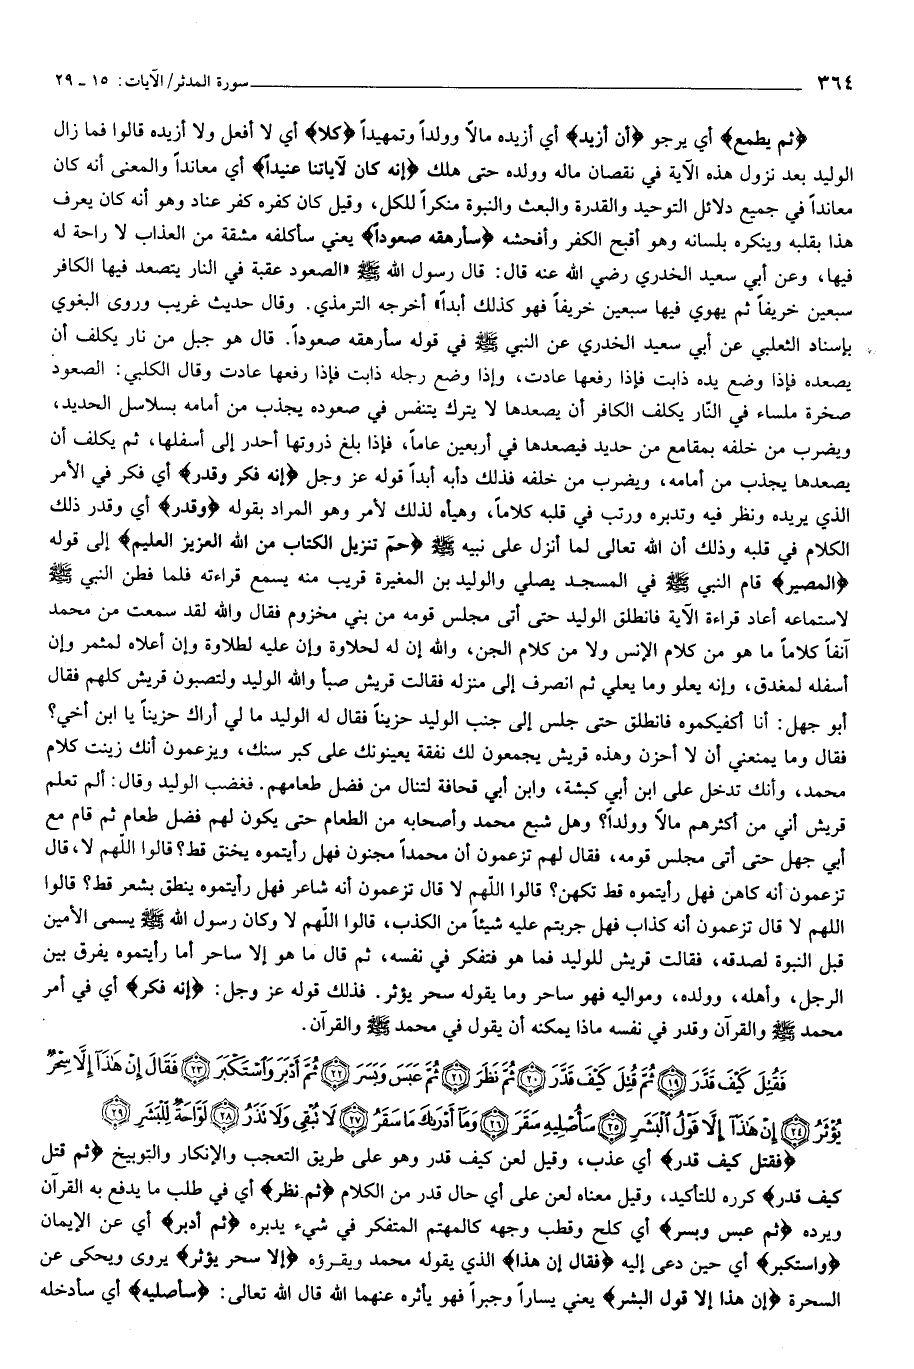 ٣٦٤ سورة المدثر/ الآيات: ١٥ ـ ٢٩
﴿ثم يطمع﴾ أي يرجو ﴿أن أزيد﴾ أي أزيده مالاً وولداً وتمهيداً ﴿كلا﴾ أي لا أفعل ولا أزيده قالوا فما زال
الوليد بعد نزول هذه الآية في نقصان ماله وولده حتى هلك ﴿إنه كان لآياتنا عنيداً﴾ أي معانداً والمعنى أنه كان
معانداً في جميع دلائل التوحيد والقدرة والبعث والنبوة منكراً للكل، وقيل كان كفره كفر عناد وهو أنه كان يعرف
هذا بقلبه وينكره بلسانه وهو أقبح الكفر وأفحشه ﴿سأرهقه صعوداً﴾ يعني سأكلفه مشقة من العذاب لا راحة له
فيها، وعن أبي سعيد الخدري رضي الله عنه قال: قال رسول الله ﷺ «الصعود عقبة في النار يتصعد فيها الكافر
سبعين خريفاً ثم يهوي فيها سبعين خريفاً فهو كذلك أبداً» أخرجه الترمذي. وقال حديث غريب وروى البغوي
بإسناد الثعلبي عن أبي سعيد الخدري عن النبي ﷺ في قوله سأرهقه صعوداً. قال هو جبل من نار يكلف أن
يصعده فإذا وضع يده ذابت فإذا رفعها عادت، وإذا وضع رجله ذابت فإذا رفعها عادت وقال الكلبي: الصعود
صخرة ملساء في النّار يكلف الكافر أن يصعدها لا يترك يتنفس في صعوده يجذب من أمامه بسلاسل الحديد،
ويضرب من خلفه بمقامع من حديد فيصعدها في أربعين عاماً، فإذا بلغ ذروتها أحدر إلى أسفلها، ثم يكلف أن
يصعدها يجذب من أمامه، ويضرب من خلفه فذلك دأبه أبداً قوله عز وجل ﴿إنه فكر وقدر﴾ أي فكر في الأمر
الذي يريده ونظر فيه وتدبره ورتب في قلبه كلاماً، وهيأه لذلك لأمر وهو المراد بقوله ﴿وقدر﴾ أي وقدر ذلك
الكلام في قلبه وذلك أن الله تعالى لما أنزل على نبيه ﷺ ﴿حمّ تنزيل الكتاب من الله العزيز العليم﴾ إلى قوله
﴿المصير﴾ قام النبي ﷺ في المسجد يصلي والوليد بن المغيرة قريب منه يسمع قراءته فلما فطن النبي ﷺ
لاستماعه أعاد قراءة الآية فانطلق الوليد حتى أتى مجلس قومه من بني مخزوم فقال والله لقد سمعت من محمد
آنفاً كلاماً ما هو من كلام الإنس ولا من كلام الجن، والله إن له لحلاوة وإن عليه لطلاوة وإن أعلاه لمثمر وإن
أسفله لمغدق، وإنه يعلو وما يعلي ثم انصرف إلى منزله فقالت قريش صبأ والله الوليد ولتصبون قريش كلهم فقال
أبو جهل: أنا أكفيكموه فانطلق حتى جلس إلى جنب الوليد حزيناً فقال له الوليد ما لي أراك حزيناً يا ابن أخي؟
فقال وما يمنعني أن لا أحزن وهذه قريش يجمعون لك نفقة يعينونك على كبر سنك، ويزعمون أنك زينت كلام
محمد، وأنك تدخل على ابن أبي كبشة، وابن أبي قحافة لتنال من فضل طعامهم. فغضب الوليد وقال: ألم تعلم
قريش أني من أكثرهم مالاً وولداً؟ وهل شبع محمد وأصحابه من الطعام حتى يكون لهم فضل طعام ثم قام مع
أبي جهل حتى أتى مجلس قومه، فقال لهم تزعمون أن محمداً مجنون فهل رأيتموه يخنق قط؟ قالوا اللّهم لا، قال
تزعمون أنه كاهن فهل رأيتموه قط تكهن؟ قالوا اللّهم لا قال تزعمون أنه شاعر فهل رأيتموه ينطق بشعر قط؟ قالوا
اللهم لا قال تزعمون أنه كذاب فهل جربتم عليه شيئاً من الكذب، قالوا اللّهم لا وكان رسول الله ﷺ يسمى الأمين
قبل النبوة لصدقه، فقالت قريش للوليد فما هو فتفكر في نفسه، ثم قال ما هو إلا ساحر أما رأيتموه يفرق بين
الرجل، وأهله، وولده، ومواليه فهو ساحر وما يقوله سحر يؤثر. فذلك قوله عز وجل: ﴿إنه فكر﴾ أي في أمر
محمد ﷺ والقرآن وقدر في نفسه ماذا يمكنه أن يقول في محمد ﷺ والقرآن.
فَقُتِلَ كَيْفَ قَدَّرَ ﴿١٩﴾ ثُمَّ قُتِلَ كَيْفَ قَدَّرَ ﴿٢٠﴾ ثُمَّ نَظَرَ ﴿٢١﴾ ثُمَّ عَبَسَ وَبَسَرَ ﴿٢٢﴾ ثُمَّ أَدْبَرَ وَٱسْتَكْبَرَ ﴿٢٣﴾ فَقَالَ إِنْ هَٰذَآ إِلَّا سِحْرٌ
يُؤْثَرُ ﴿٢٤﴾ إِنْ هَٰذَآ إِلَّا قَوْلُ ٱلْبَشَرِ ﴿٢٥﴾ سَأُصْلِيهِ سَقَرَ ﴿٢٦﴾ وَمَآ أَدْرَىٰكَ مَا سَقَرُ ﴿٢٧﴾ لَا تُبْقِى وَلَا تَذَرُ ﴿٢٨﴾ لَوَّاحَةٌ لِّلْبَشَرِ ﴿٢٩﴾
﴿فقتل كيف قدر﴾ أي عذب، وقيل لعن كيف قدر وهو على طريق التعجب والإنكار والتوبيخ ﴿ثم قتل
كيف قدر﴾ كرره للتأكيد، وقيل معناه لعن على أي حال قدر من الكلام ﴿ثم نظر﴾ أي في طلب ما يدفع به القرآن
ويرده ﴿ثم عبس وبسر﴾ أي كلح وقطب وجهه كالمهتم المتفكر في شيء يدبره ﴿ثم أدبر﴾ أي عن الإيمان
﴿واستكبر﴾ أي حين دعى إليه ﴿فقال إن هذا﴾ الذي يقوله محمد ويقرؤه ﴿إلا سحر يؤثر﴾ يروى ويحكى عن
السحرة ﴿إن هذا إلا قول البشر﴾ يعني يساراً وجبراً فهو يأثره عنهما الله قال الله تعالى: ﴿سأصليه﴾ أي سأدخله